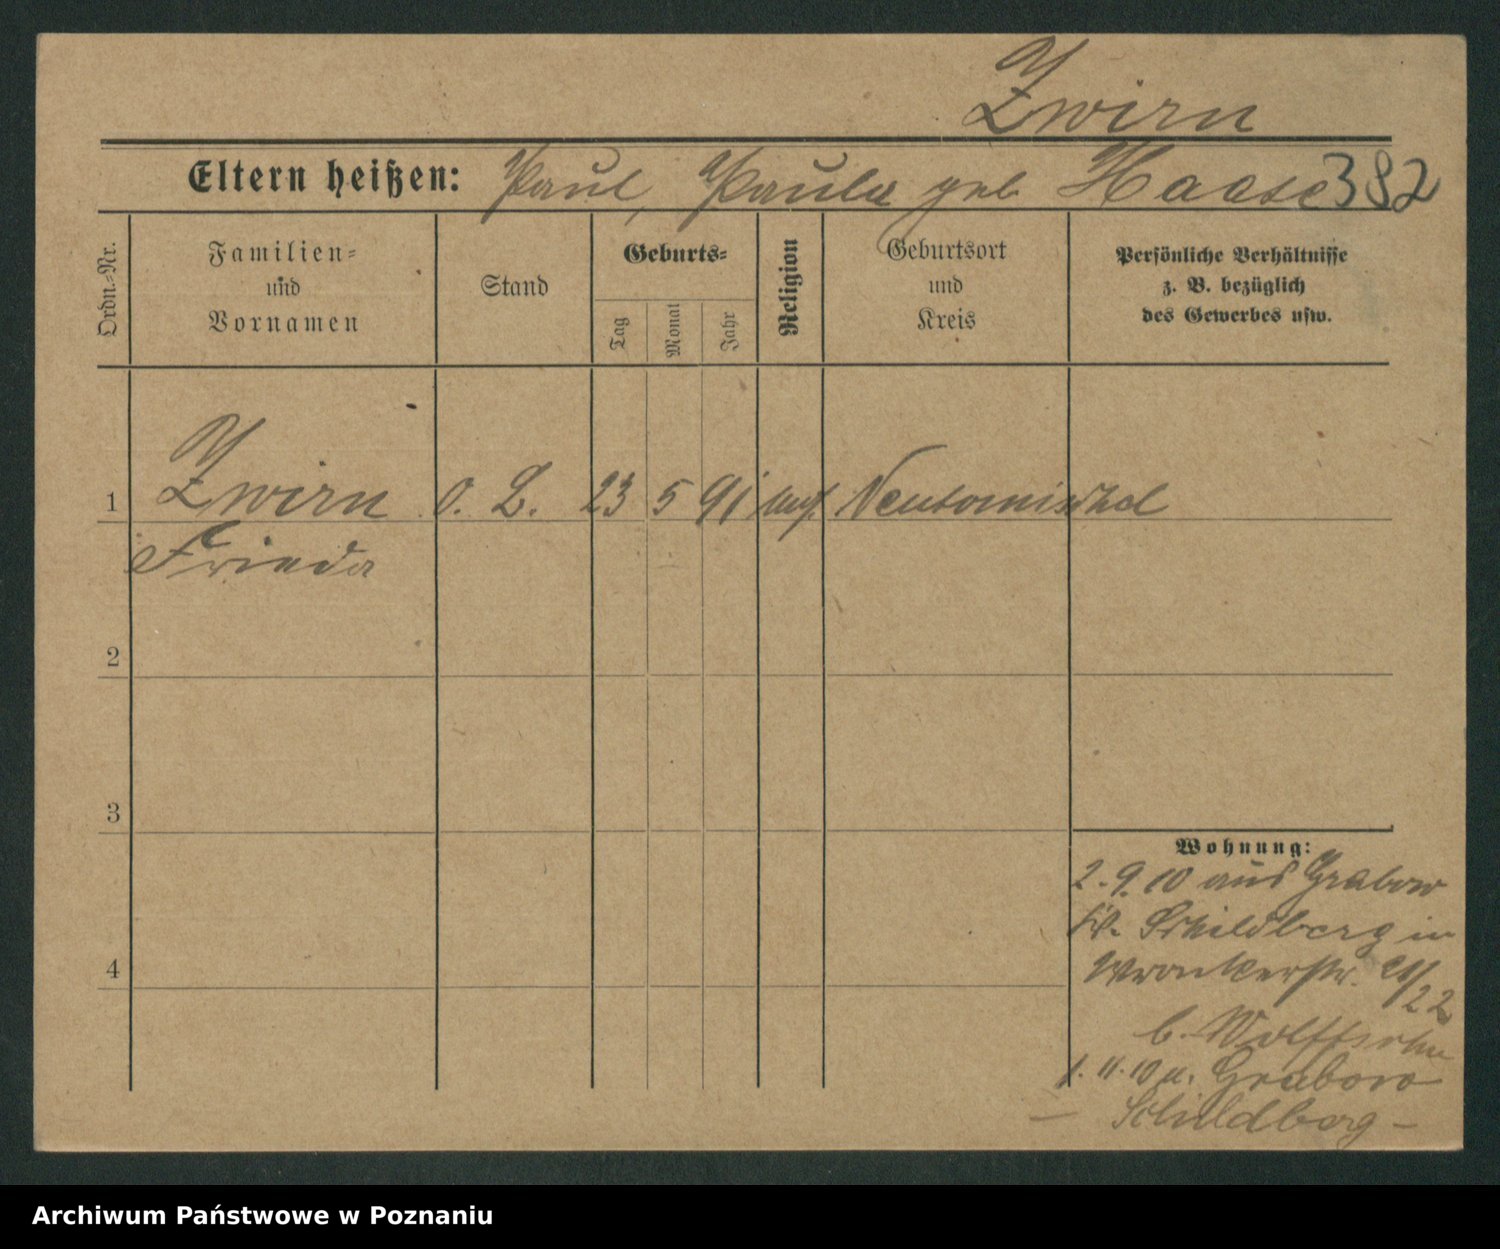 Zwirn
Eltern heißen: Paul, Paula geb Haase 382
Ordn.-Nr.
Familien-
und
Vornamen
Stand
Geburts-
Tag
Monat
Jahr
Religion
Geburtsort
und
Kreis
Persönliche Verhältnisse
z. B. bezüglich
des Gewerbes usw.
1 Zwirn o. B. 23 5 91 Neutomischel
Frieda
2
3
4
Wohnung:
2.9.10 aus Grabow
Kr. Schildberg in
Wronkerstr. 21/22
b. Wolffsohn
1.11.10 n. Grabow
– Schildberg –
Archiwum Państwowe w Poznaniu